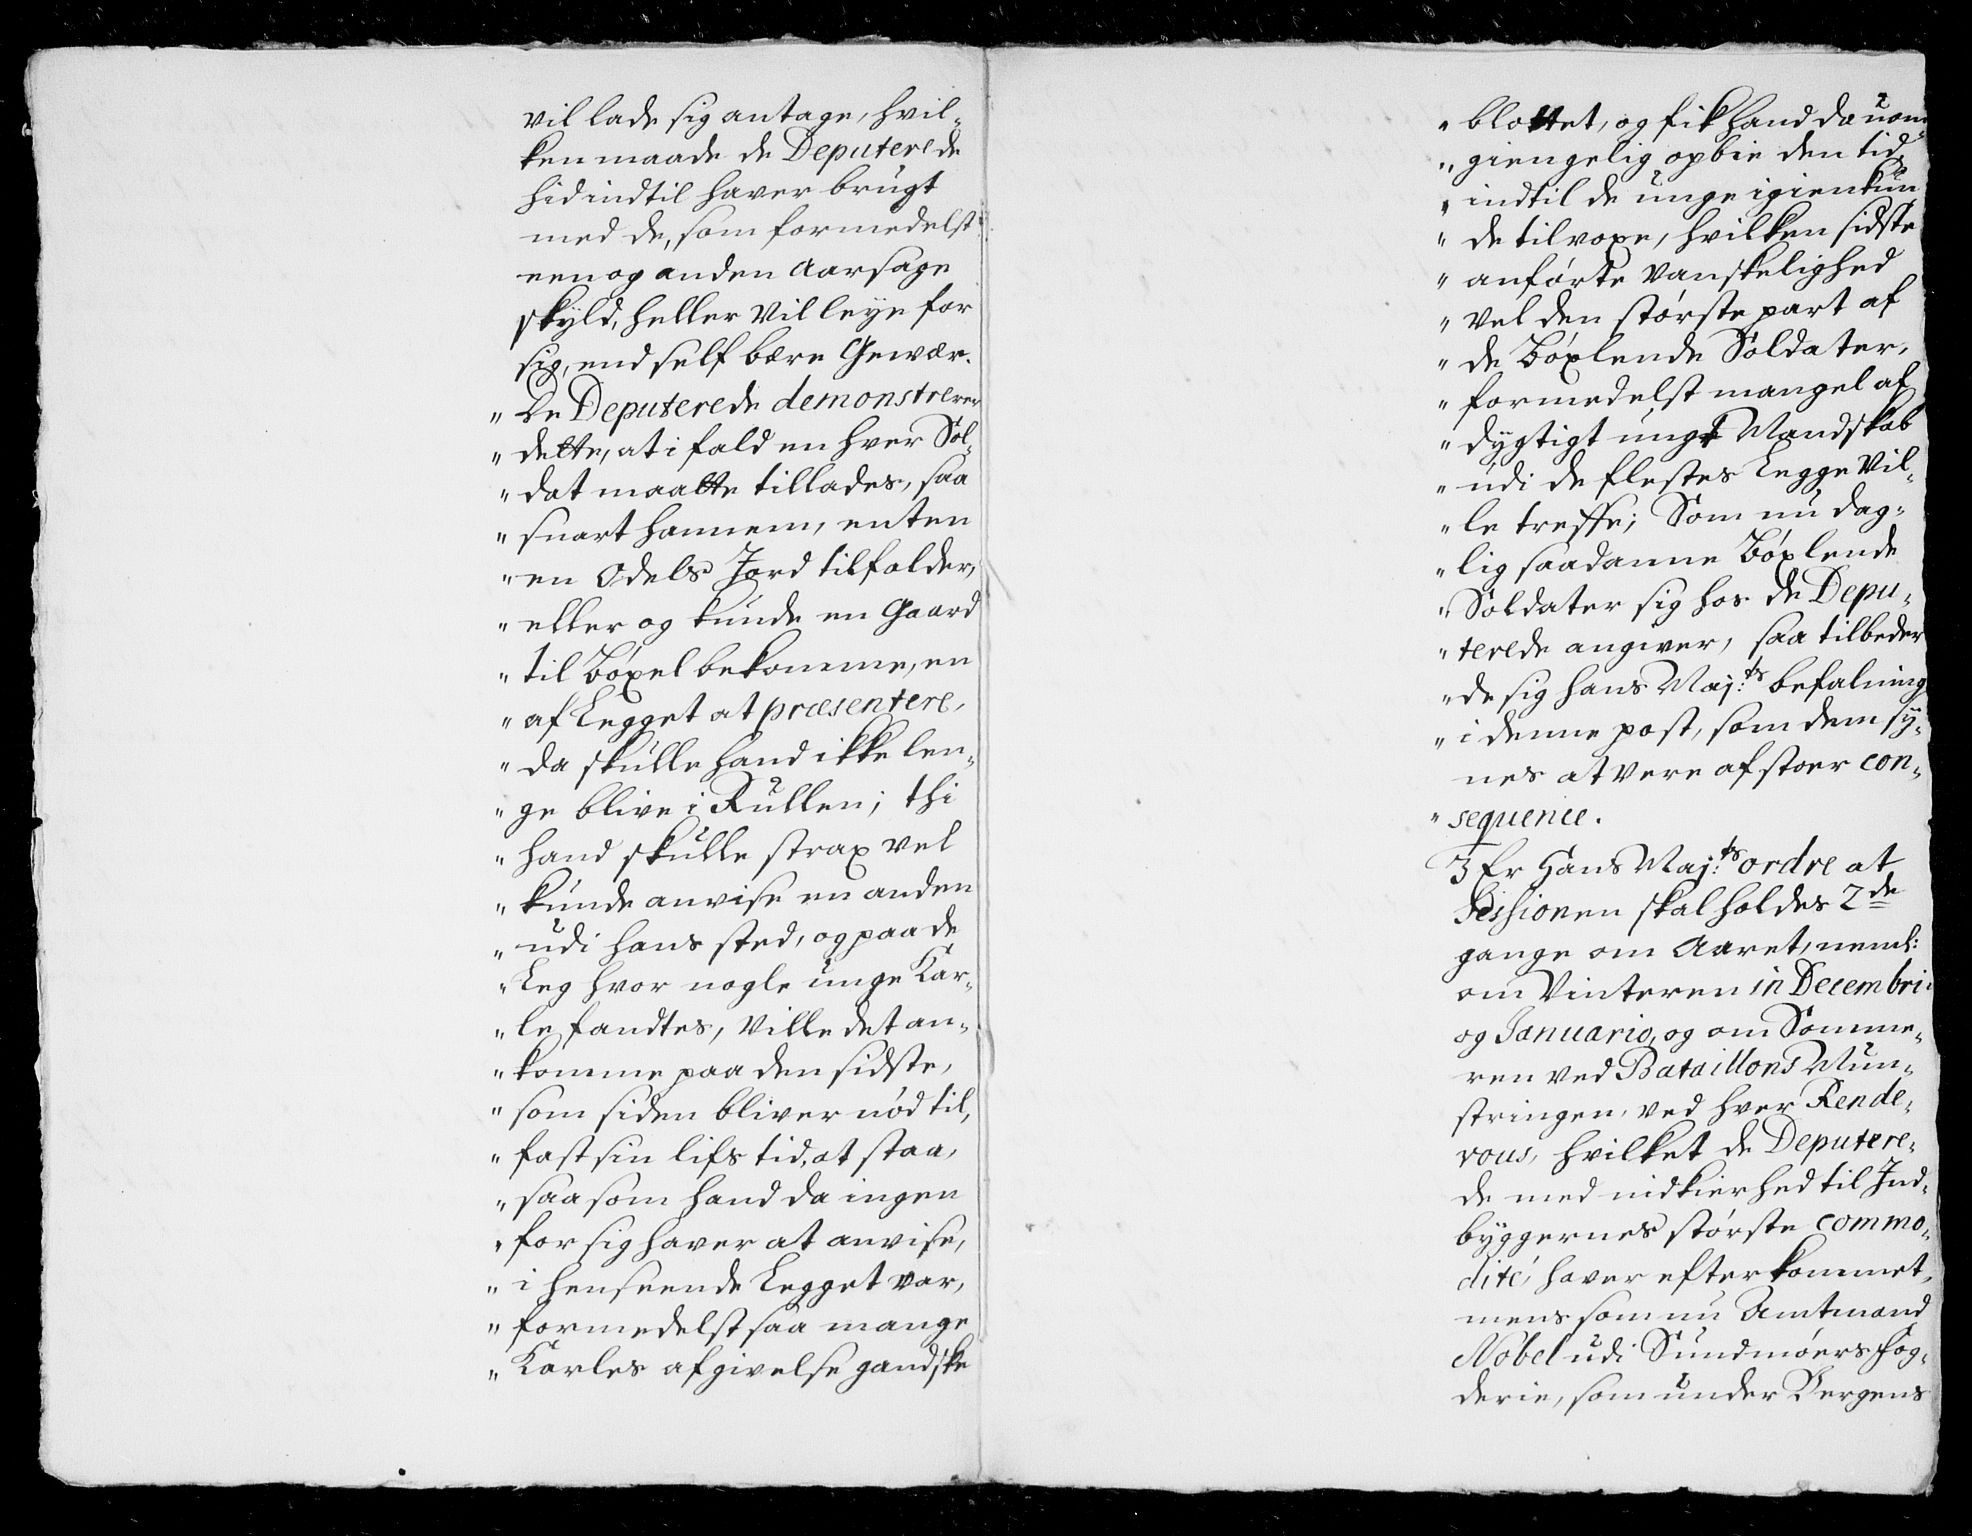 vil lade sig antage, hvil-
ken maade de Deputerede
hid indtil haver brugt
med de, som formedelst
een og anden Aarsage
skyld, heller vil leye for
sig, end self bære Gewær.
" De Deputerede demonstrerer
" dette, at i fald en hver Sol-
" dat maatte tillades, saa
" snart hannem, enten
" en Odels Jord tilfalder,
" eller og kunde en Gaard
" til Bøxel bekomme, en
" af Legget at præsentere,
" da skulle hand ikke len-
" ge blive i Rullen; thi
" hand skulle strax vel
" kunde anvise en anden
" udi hans sted, og paa de
" Leg hvor nogle unge Kar-
" le fandtes, ville det an-
" komme paa den sidste,
" som siden bliver nød til,
" fast sin lifs tid, at staa,
" saasom hand da ingen
" for sig haver at anvise,
" i henseende Legget var,
" formedelst saa mange
" Karles afgivelse gandske
" blottet, og fik hand da uom-
" giengelig opbie den tid,
" indtil de unge igien kun-
" de tilvoxe, hvilken sidste
" anførte vanskelighed
" vel den største part af
" de Bøxlende Soldater,
" formedelst mangel af
" dygtigt ungt Mandskab
" udi de flestes Legge vil-
" le treffe; Som nu dag-
" lig saadanne Bøxlende
" Soldater sig hos de Depu-
" terede angiver, saa tilbeder
" de sig hans Maj:ts befalning
" i denne post, som dem sy-
nes at være af stoer con-
" sequence.
3 Er Hans Maj:ts ordre at
Sessionen skal holdes 2de
gange om Aaret, neml:
om Vinteren in Decembri
og Januario, og om Somme-
ren ved Bataillons Mun-
stringen, ved hver Rende-
vous, hvilket de Deputere-
de med nidkierhed til Ind-
byggernes største commo-
dité, haver efterkommet,
mens som nu Amtmand
Nobel udi Sundmøers Fog-
derie, som under Bergens